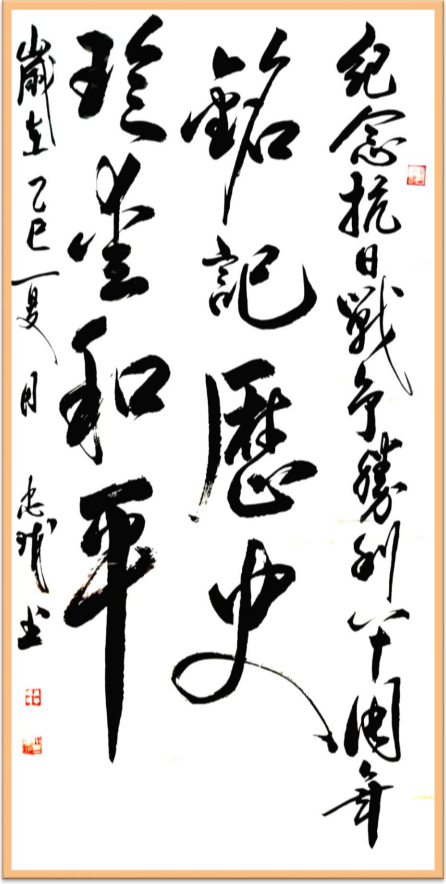 紀念抗日戰争勝利八十周年
銘記歷史
珍愛和平
歲在乙巳夏月 忠 书